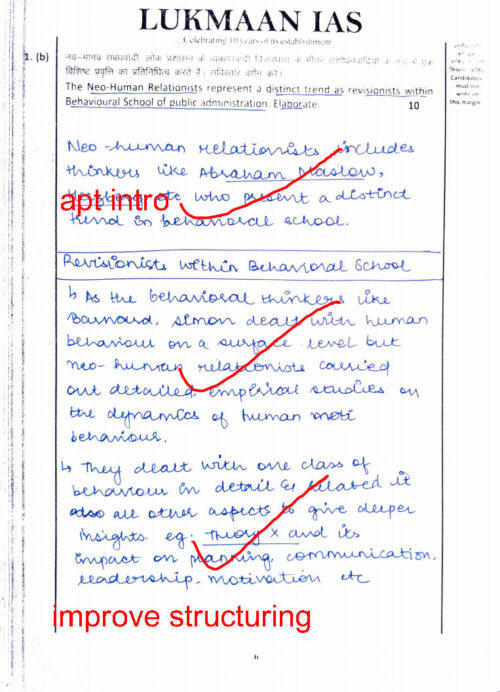 LUKMAAN IAS
...Celebrating 10 years of its establishment
1. (b)
विशिष्ट प्रवृत्ति का प्रतिनिधित्व करते हैं। सविस्तार वर्णन करें।
The Neo-Human Relationists represent a distinct trend as revisionists within
Behavioural School of public administration. Elaborate. 10
Candidates
must not
write on
this margin
Neo-human relationists includes
thinkers like Abraham Maslow,
etc who present a distinct
apt intro
trend in behavioral school.
Revisionists within Behavioral School
↳ As the behavioral thinkers like
Barnard, simon dealt with human
behaviour on a surface level but
neo-human relationists carried
out detailed empirical studies on
the dynamics of human
behaviour.
↳ They dealt with one class of
behaviour in detail & related it
all other aspects to give deeper
insights. eg: Theory X and its
impact on planning, communication,
leadership, motivation etc
improve structuring
6